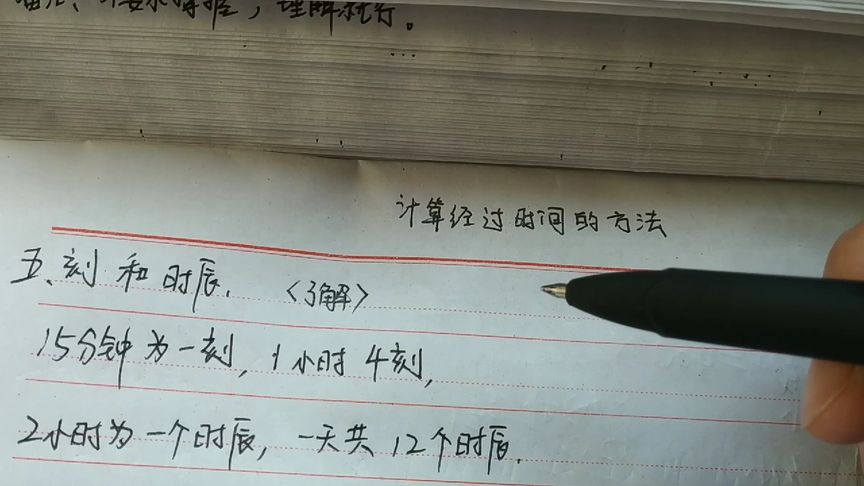 理解就行。
计算经过时间的方法
五、刻和时辰.〈了解〉
15分钟为一刻,1小时4刻,
2小时为一个时辰,一天共12个时辰.